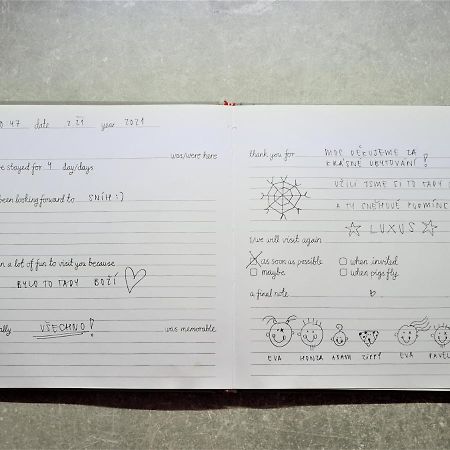 47 date 2 ZÁŘÍ year 2021
was/were here
stayed for 4 day/days
been looking foward to SNÍH :)
a lot of fun to visit you because
BYLO TO TADY BOŽÍ
VŠECHNO! was memorable
thank you for MOC DĚKUJEME ZA
KRÁSNÉ UBYTOVÁNÍ!
UŽILI JSME SI TO TADY
A TY SNĚHOVÉ PODMÍNK
LUXUS
I/we will visit again
as soon as possible when invited
maybe when pigs fly
a final note
EVA HONZA ADAM ZIPPY EVA PAVEL